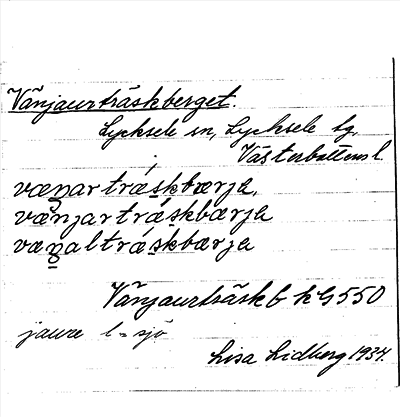 Vänjaurträskberget.
Lycksele sn, Lycksele lg,
Västerbottens l.
væn̥artrǽskbærja,
vænjartrǽskbærja
væn̥altrǽskbærja
Vänjaurträskb kG550
jaure l = sjö
Lisa Lidberg 1934.